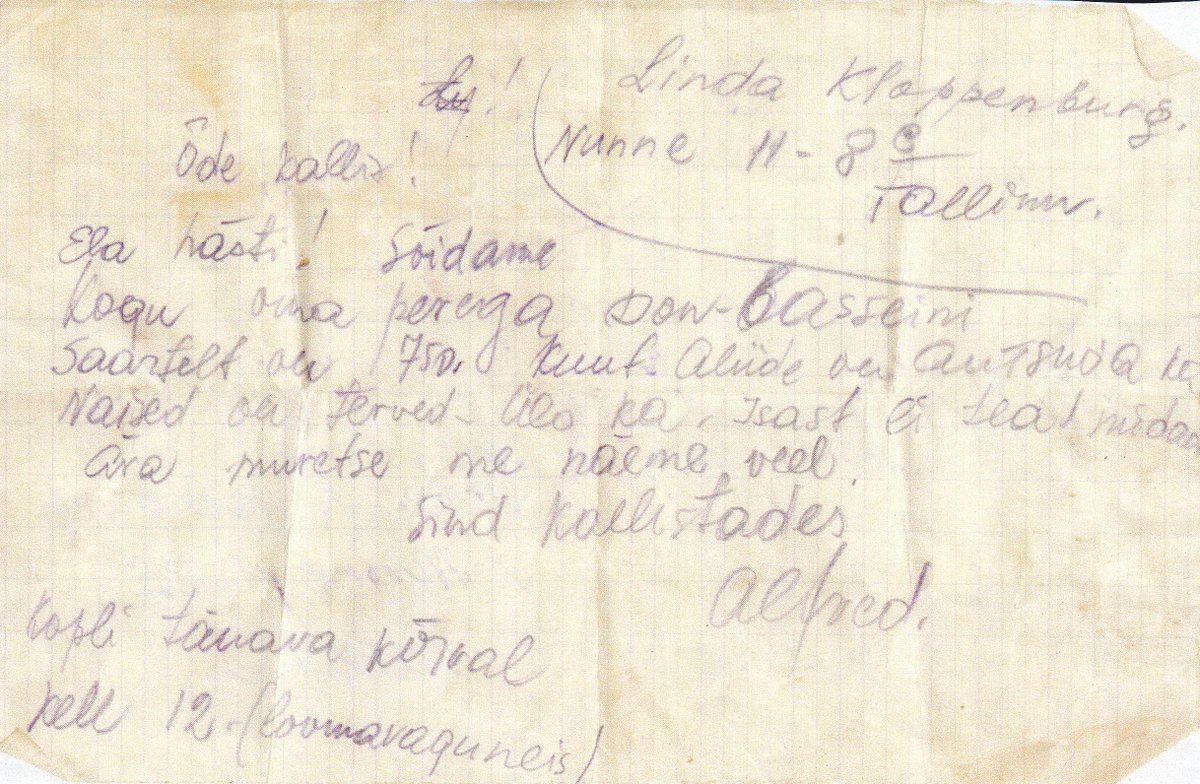 Linda Kloppenburg.
Nunne 11 - 8 c
Tallinn.
Õde kallis!
Ela hästi! Sõidame
Kogu oma perega Don-Basseini
Saartelt on 750. Kunt Aliide on
Naised on terved - Ülo ka. Isast ei tea midagi
Ära muretse me näeme veel.
Sind Kallistades
Alfred.
Kopli tänava kõrval
kell 12 - (loomavaguneis)